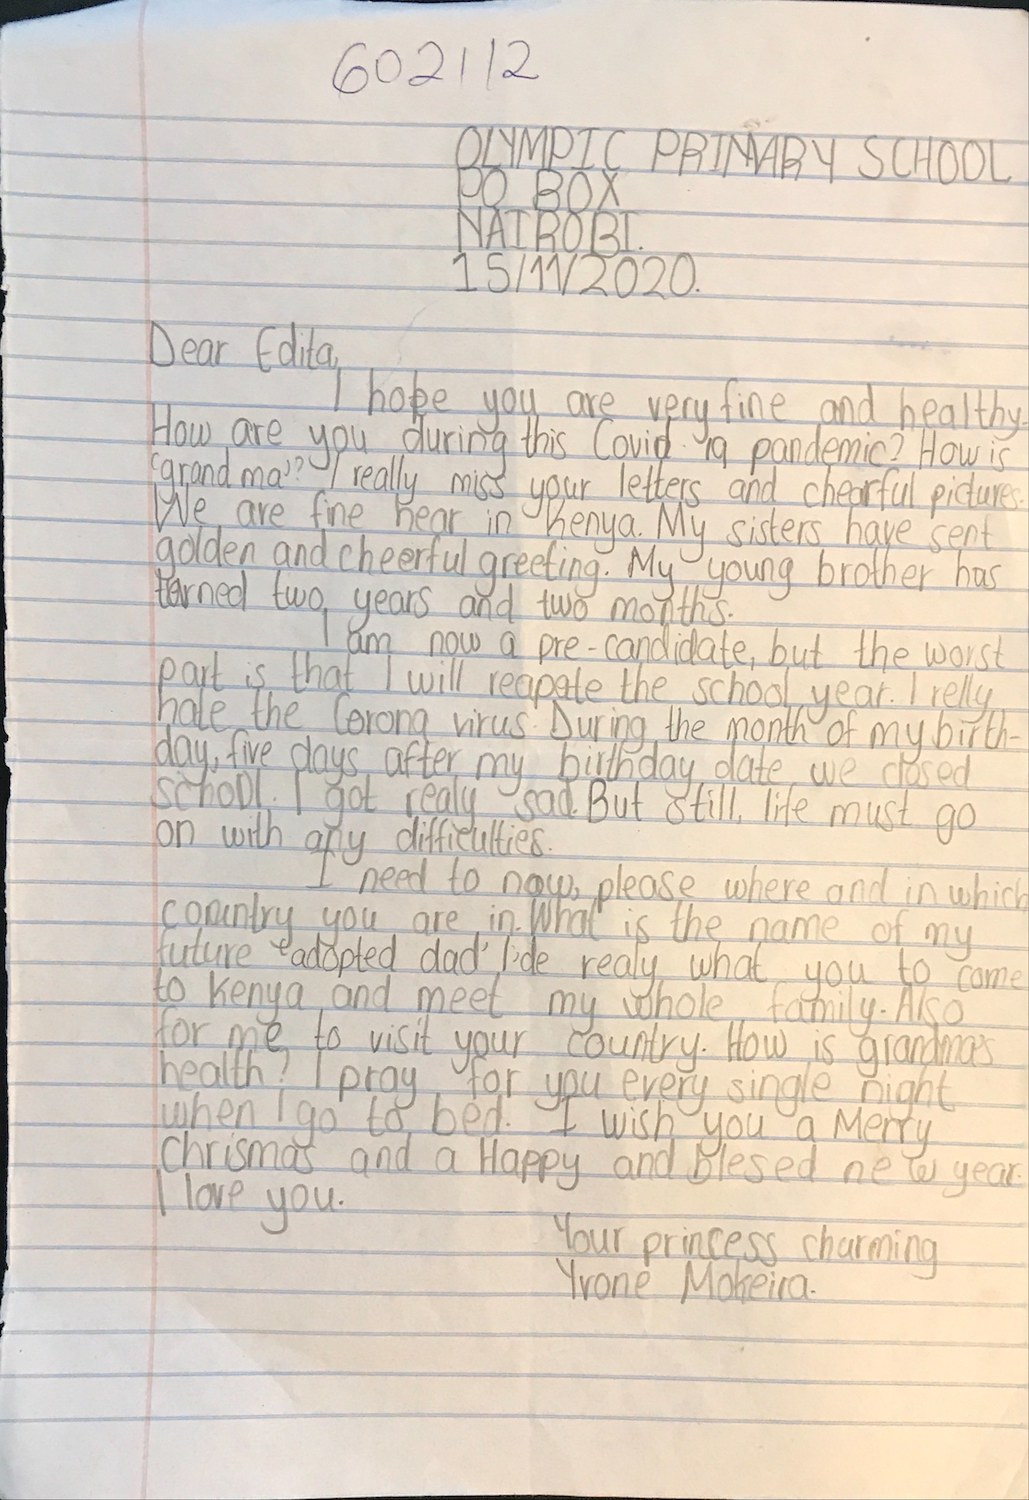 602112
OLYMPIC PRIMARY SCHOOL
PO BOX
NAIROBI.
15/11/2020.
Dear Edita,
I hope you are very fine and healthy.
How are you during this Covid-19 pandemic? How is
"grandma"? I really miss your letters and chearful pictures.
We are fine hear in Kenya. My sisters have sent
golden and cheerful greeting. My young brother has
terned two years and two months.
I am now a pre-candidate, but the worst
part is that I will reapete the school year. I relly
hate the Corona virus. During the month of my birth-
day, five days after my birthday date we closed
school. I got realy sad. But still, life must go
on with any difficulties.
I need to now, please where and in which
country you are in. What is the name of my
future "adopted dad" I'de realy what you to come
to Kenya and meet my whole family. Also
for me to visit your country. How is grandma's
health? I pray for you every single night
when I go to bed. I wish you a Merry
Chrismas and a Happy and blesed new year.
I love you.
Your princess charming
Yvone Mokeira.